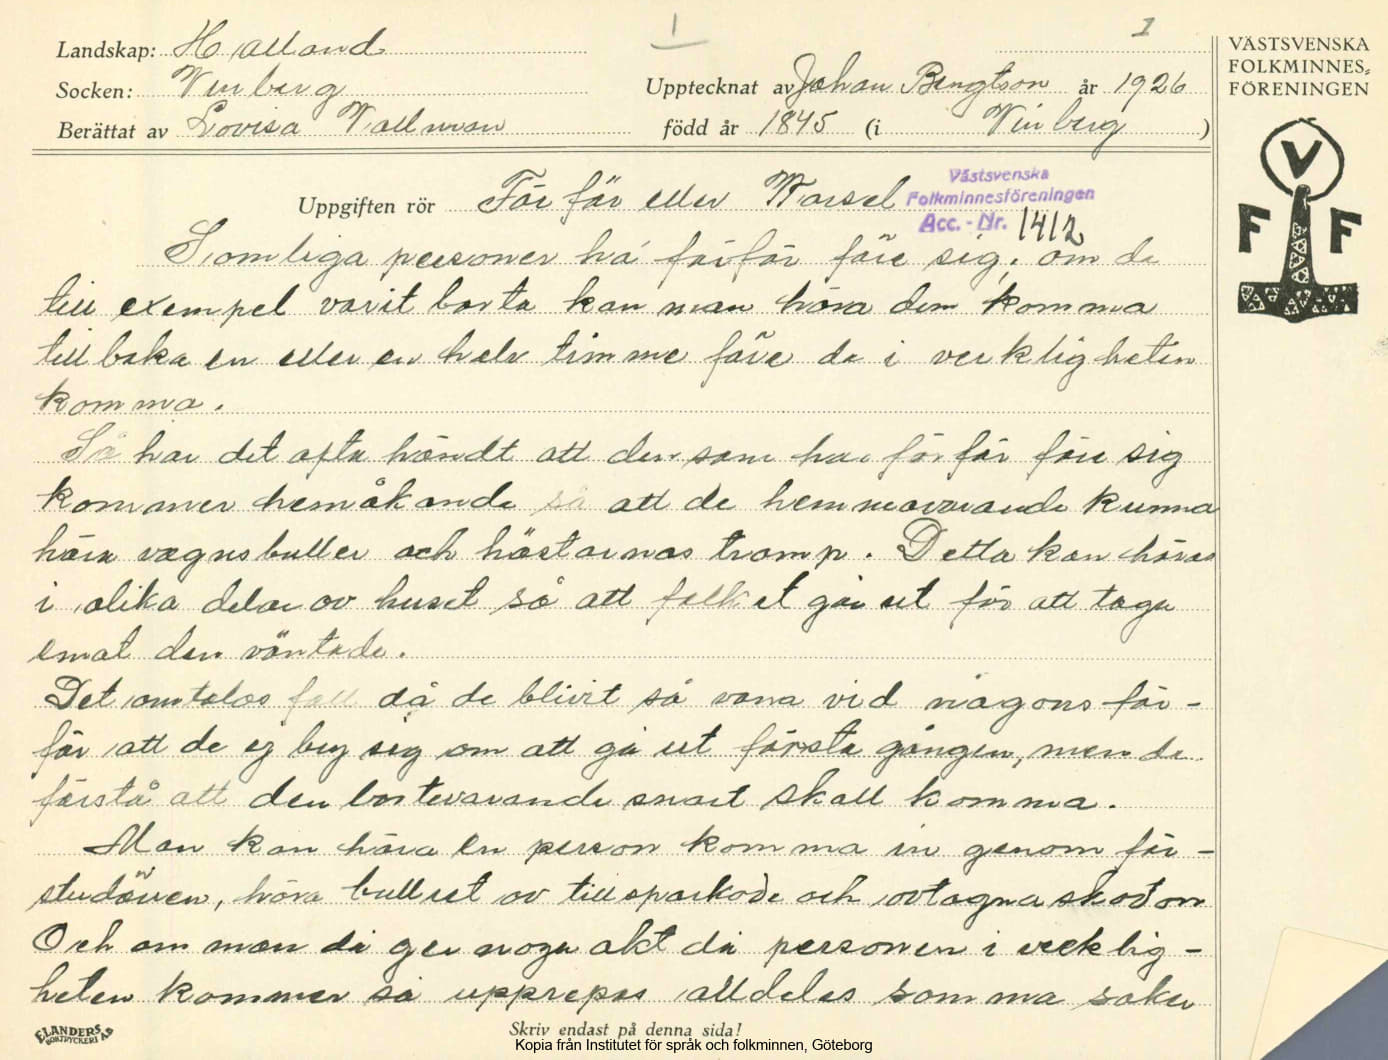 1
1
Landskap: Halland
Socken: Vinberg
Upptecknat av Johan Bengtson år 1926
Berättat av Lovisa Wallman
född år 1845 (i Vinberg)
VÄSTSVENSKA
FOLKMINNES-
FÖRENINGEN
V
F F
Uppgiften rör Förfär eller Varsel
Västsvenska
Folkminnesföreningen
Acc.-Nr. 1412
Somliga personer ha förfär före sig; om de
till exempel varit borta kan man höra dem komma
tillbaka en eller en halv timme före de i verkligheten
komma.
Så har det ofta händt att den som har förfär före sig
kommer hemåkande så att de hemmavarande kunna
höra vagnsbuller och hästarnas tramp. Detta kan höras
i olika delar av huset så att folket går ut för att taga
emot den väntade.
Det omtalas fall då de blivit så vana vid någons för-
fär att de ej bry sig om att gå ut första gången, men de
förstå att den bortevarande snart skall komma.
Man kan höra en person komma in genom för-
studörren, höra bullret av tillsparkade och avtagna skodon
Och om man då ger noga akt då personen i verklig-
heten kommer så upprepas alldeles samma saker
ELANDERS
BOKTRYCKERI AB
Skriv endast på denna sida!
Kopia från Institutet för språk och folkminnen, Göteborg